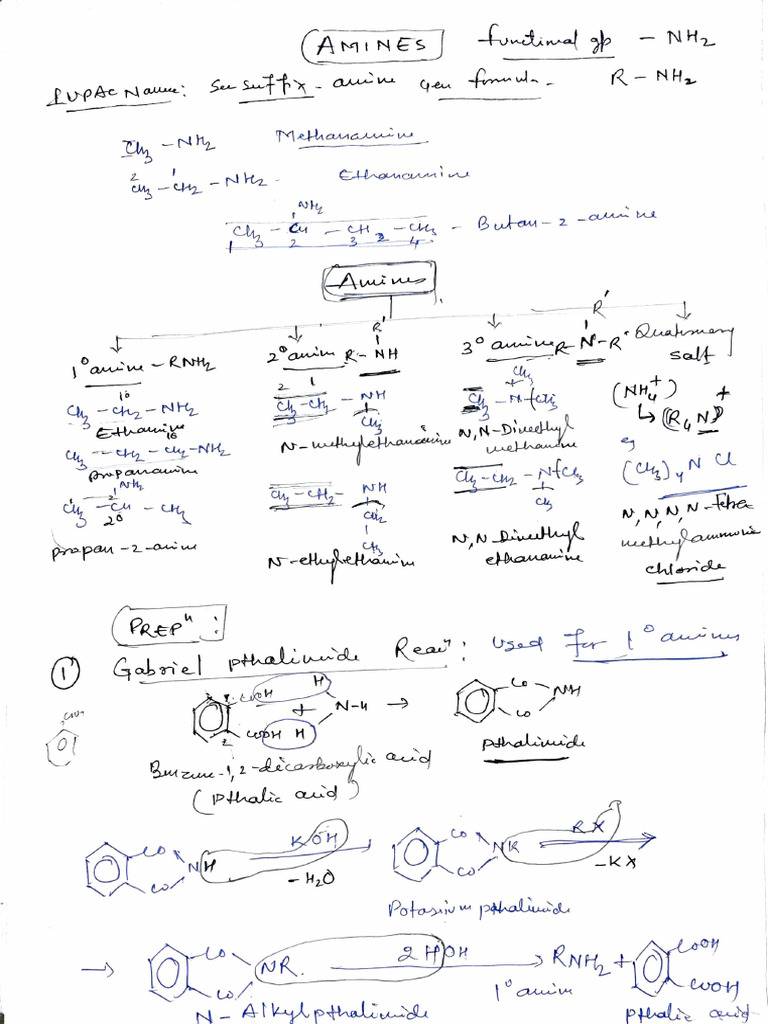 AMINES functional gp - NH2
IUPAC Name: See suffix - amine Gen formula - R - NH2
CH3 - NH2 Methanamine
2 1
CH3 - CH2 - NH2 - Ethanamine
NH2
CH3 - CH - CH2 - CH3 - Butan-2-amine
1 2 3 4
Amines
1° amine - RNH2 2° amin R - NH 3° amine R - N - R" Quaternary salt
R' R'
CH3 - CH2 - NH2
1°
Ethamine
CH3 - CH2 - CH2 - NH2
1°
propanamine
NH2
CH3 - CH - CH3
2°
propan-2-amine
2 1
CH3 - CH2 - NH
CH3
N-methylethanamine
CH3 - CH2 - NH
CH2
CH3
N-ethylethamine
CH3
CH3 - N - CH3
N,N-Dimethyl methanamine
CH3 - CH2 - N - CH3
CH3
N,N-Dimethyl ethanamine
(NH4+)
(R4N)+
eg
(CH3)4 N Cl
N,N,N,N-Tetra
methylammonium
chloride
PREPn:
1 Gabriel pthalimide Reacn: Used for 1° amines
COOH
COOH H
+ N-H →
COOH H
2
CO
NH
CO
pthalimide
Benzene-1,2-dicarboxylic acid
(pthalic acid)
CO
NH KOH
CO -H2O
CO
NK RX
CO -KX
Potassium pthalimide
→ CO
NR. 2 HOH → RNH2 + COOH
CO 1° amin COOH
N-Alkylpthalimide pthalic acid